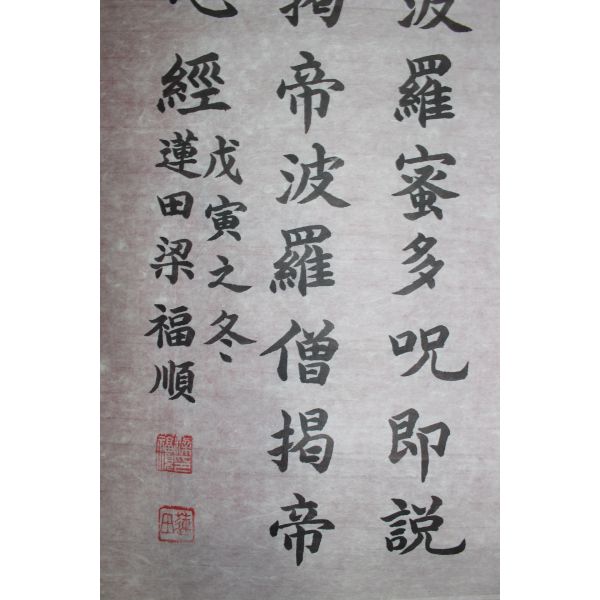 波羅蜜多呪即說
揭帝波羅僧揭帝
心經
戊寅之冬
蓮田梁福順